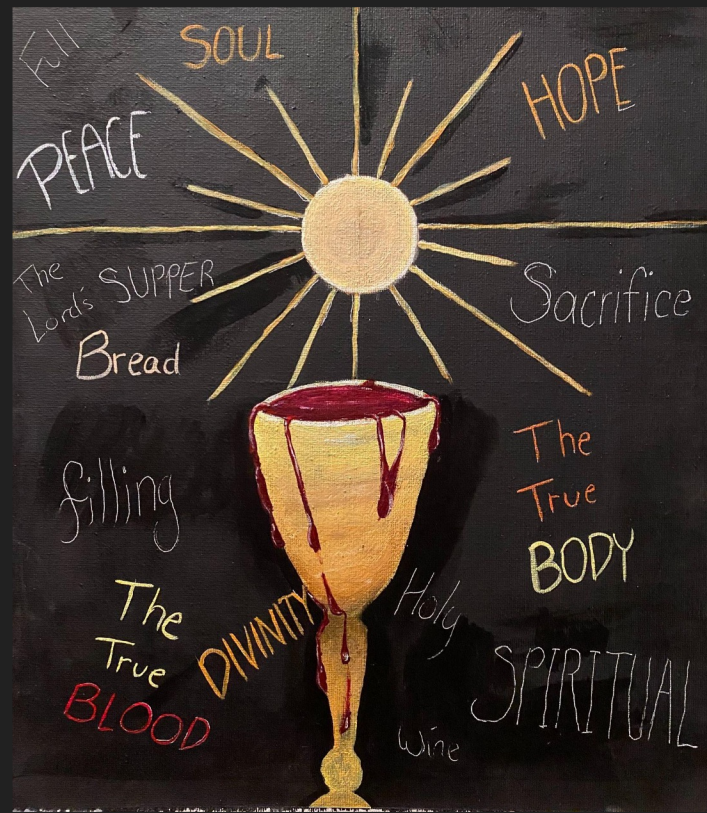 Full
SOUL
HOPE
PEACE
The
Lord's SUPPER
Sacrifice
Bread
The
True
BODY
filling
The
True
BLOOD
DIVINITY
Holy
SPIRITUAL
Wine